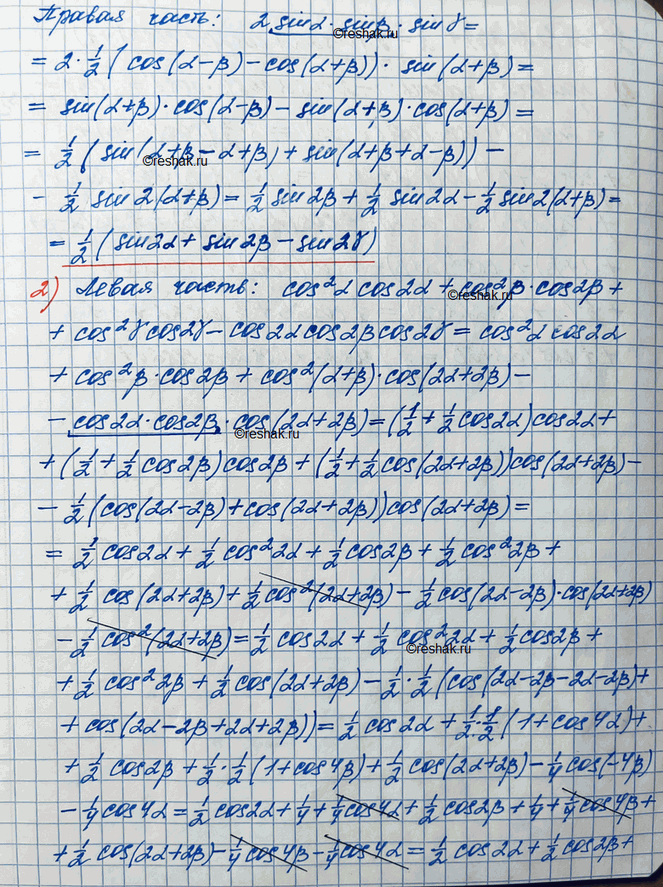 Правая часть: 2 sinα · sinβ · sinγ =
©reshak.ru
= 2 · 1/2 (cos(α-β) - cos(α+β)) · sin(α+β) =
= sin(α+β) · cos(α-β) - sin(α+β) · cos(α+β) =
= 1/2 (sin(α+β-α+β) + sin(α+β+α-β)) -
©reshak.ru
- 1/2 sin 2(α+β) = 1/2 sin2β + 1/2 sin2α - 1/2 sin2(α+β) =
= 1/2 (sin2α + sin2β - sin2γ)
2) Левая часть: cos²α cos2α + cos²β · cos2β +
©reshak.ru
+ cos²γ cos2γ - cos2α cos2β cos2γ = cos²α cos2α
+ cos²β · cos2β + cos²(α+β) · cos(2α+2β) -
- cos2α · cos2β · cos(2α+2β) = (1/2 + 1/2 cos2α) cos2α +
©reshak.ru
+ (1/2 + 1/2 cos2β) cos2β + (1/2 + 1/2 cos(2α+2β)) cos(2α+2β) -
- 1/2 (cos(2α-2β) + cos(2α+2β)) cos(2α+2β) =
= 1/2 cos2α + 1/2 cos²2α + 1/2 cos2β + 1/2 cos²2β +
+ 1/2 cos(2α+2β) + 1/2 cos²(2α+2β) - 1/2 cos(2α-2β) · cos(2α+2β)
- 1/2 cos²(2α+2β) = 1/2 cos2α + 1/2 cos²2α + 1/2 cos2β +
©reshak.ru
+ 1/2 cos²2β + 1/2 cos(2α+2β) - 1/2 · 1/2 (cos(2α-2β-2α-2β) +
+ cos(2α-2β+2α+2β)) = 1/2 cos2α + 1/2 · 1/2 (1 + cos4α) +
+ 1/2 cos2β + 1/2 · 1/2 (1 + cos4β) + 1/2 cos(2α+2β) - 1/4 cos(-4β)
- 1/4 cos4α = 1/2 cos2α + 1/4 + 1/4 cos4α + 1/2 cos2β + 1/4 + 1/4 cos4β +
+ 1/2 cos(2α+2β) - 1/4 cos4β - 1/4 cos4α = 1/2 cos2α + 1/2 cos2β +